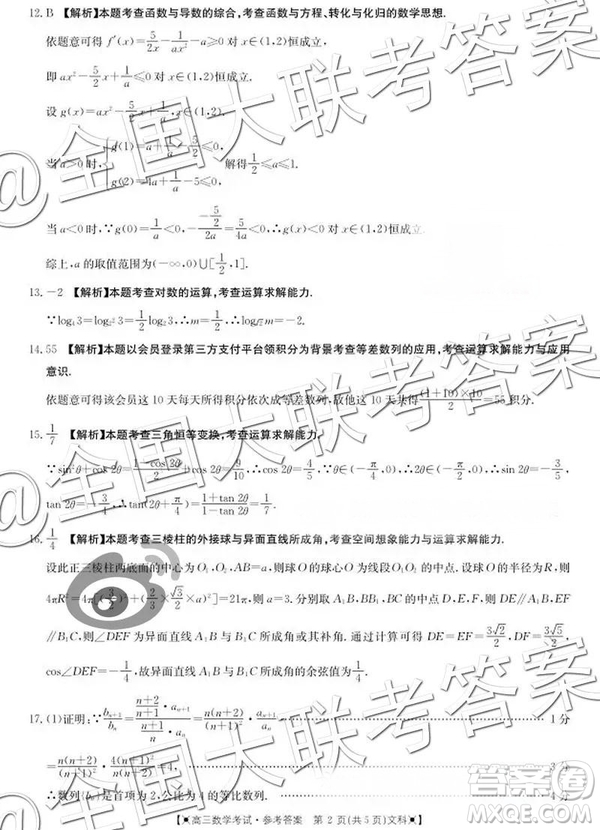 12. B 【解析】本题考查函数与导数的综合,考查函数与方程、转化与化归的数学思想.
依题意可得 f′(x)=5/(2x)-1/(ax²)-a≥0 对 x∈(1,2)恒成立,
即 ax²-(5/2)x+1/a≤0 对 x∈(1,2)恒成立.
设 g(x)=ax²-(5/2)x+1/a,
当 a>0 时, g(1) g(2)=4a+1/a-5≤0, 解得 1/2≤a≤1.
当 a<0 时,∵g(0)=1/a<0,-(-5/2)/(2a)=5/(4a)<0,∴g(x)<0 对 x∈(1,2)恒成立.
综上,a 的取值范围为(-∞,0)∪[1/2,1].
13. -2 【解析】本题考查对数的运算,考查运算求解能力.
14. 55 【解析】本题以会员登录第三方支付平台领积分为背景考查等差数列的应用,考查运算求解能力与应用
意识.
依题意可得该会员这 10 天每天所得积分依次成等差数列,故他这 10 天共得(1+10)×10/2=55 积分.
15. 1/7 【解析】本题考查三角恒等变换,考查运算求解能力.
∵sin²θ+cos 2θ=(1-cos 2θ)/2+cos 2θ
tan 2θ=-3/4,∴tan(2θ+π/4)=(1+tan 2θ)/(1-tan 2θ)=1/7.
16. 1/4 【解析】本题考查三棱柱的外接球与异面直线所成角,考查空间想象能力与运算求解能力.
设此正三棱柱两底面的中心为 O₁,O₂,AB=a,则球 O 的球心 O 为线段 O₁O₂ 的中点.设球 O 的半径为 R,则
=21π,则 a=3.分别取 A₁B₁,BB₁,BC 的中点 D,E,F,则 DE∥A₁B,EF
∥B₁C,则∠DEF 为异面直线 A₁B 与 B₁C 所成角或其补角.通过计算可得 DE=EF=3√2/2,DF=3√5/2,
cos∠DEF=-1/4,故异面直线 A₁B 与 B₁C 所成角的余弦值为1/4.
17.(1)证明:∵b_{n+1}/b_n=((n+2)/(n+1)·a_{n+1})/((n+1)/n·a_n)=n(n+2)/(n+1)²·a_{n+1}/a_n 1 分
=n(n+2)/(n+1)²·4(n+1)²/(n(n+2))=4, 3 分
∴数列{b_n}是首项为 2,公比为 4 的等比数列.
【高三数学考试·参考答案 第 2 页(共 5 页)文科】
@全国大联考答案
答案圈